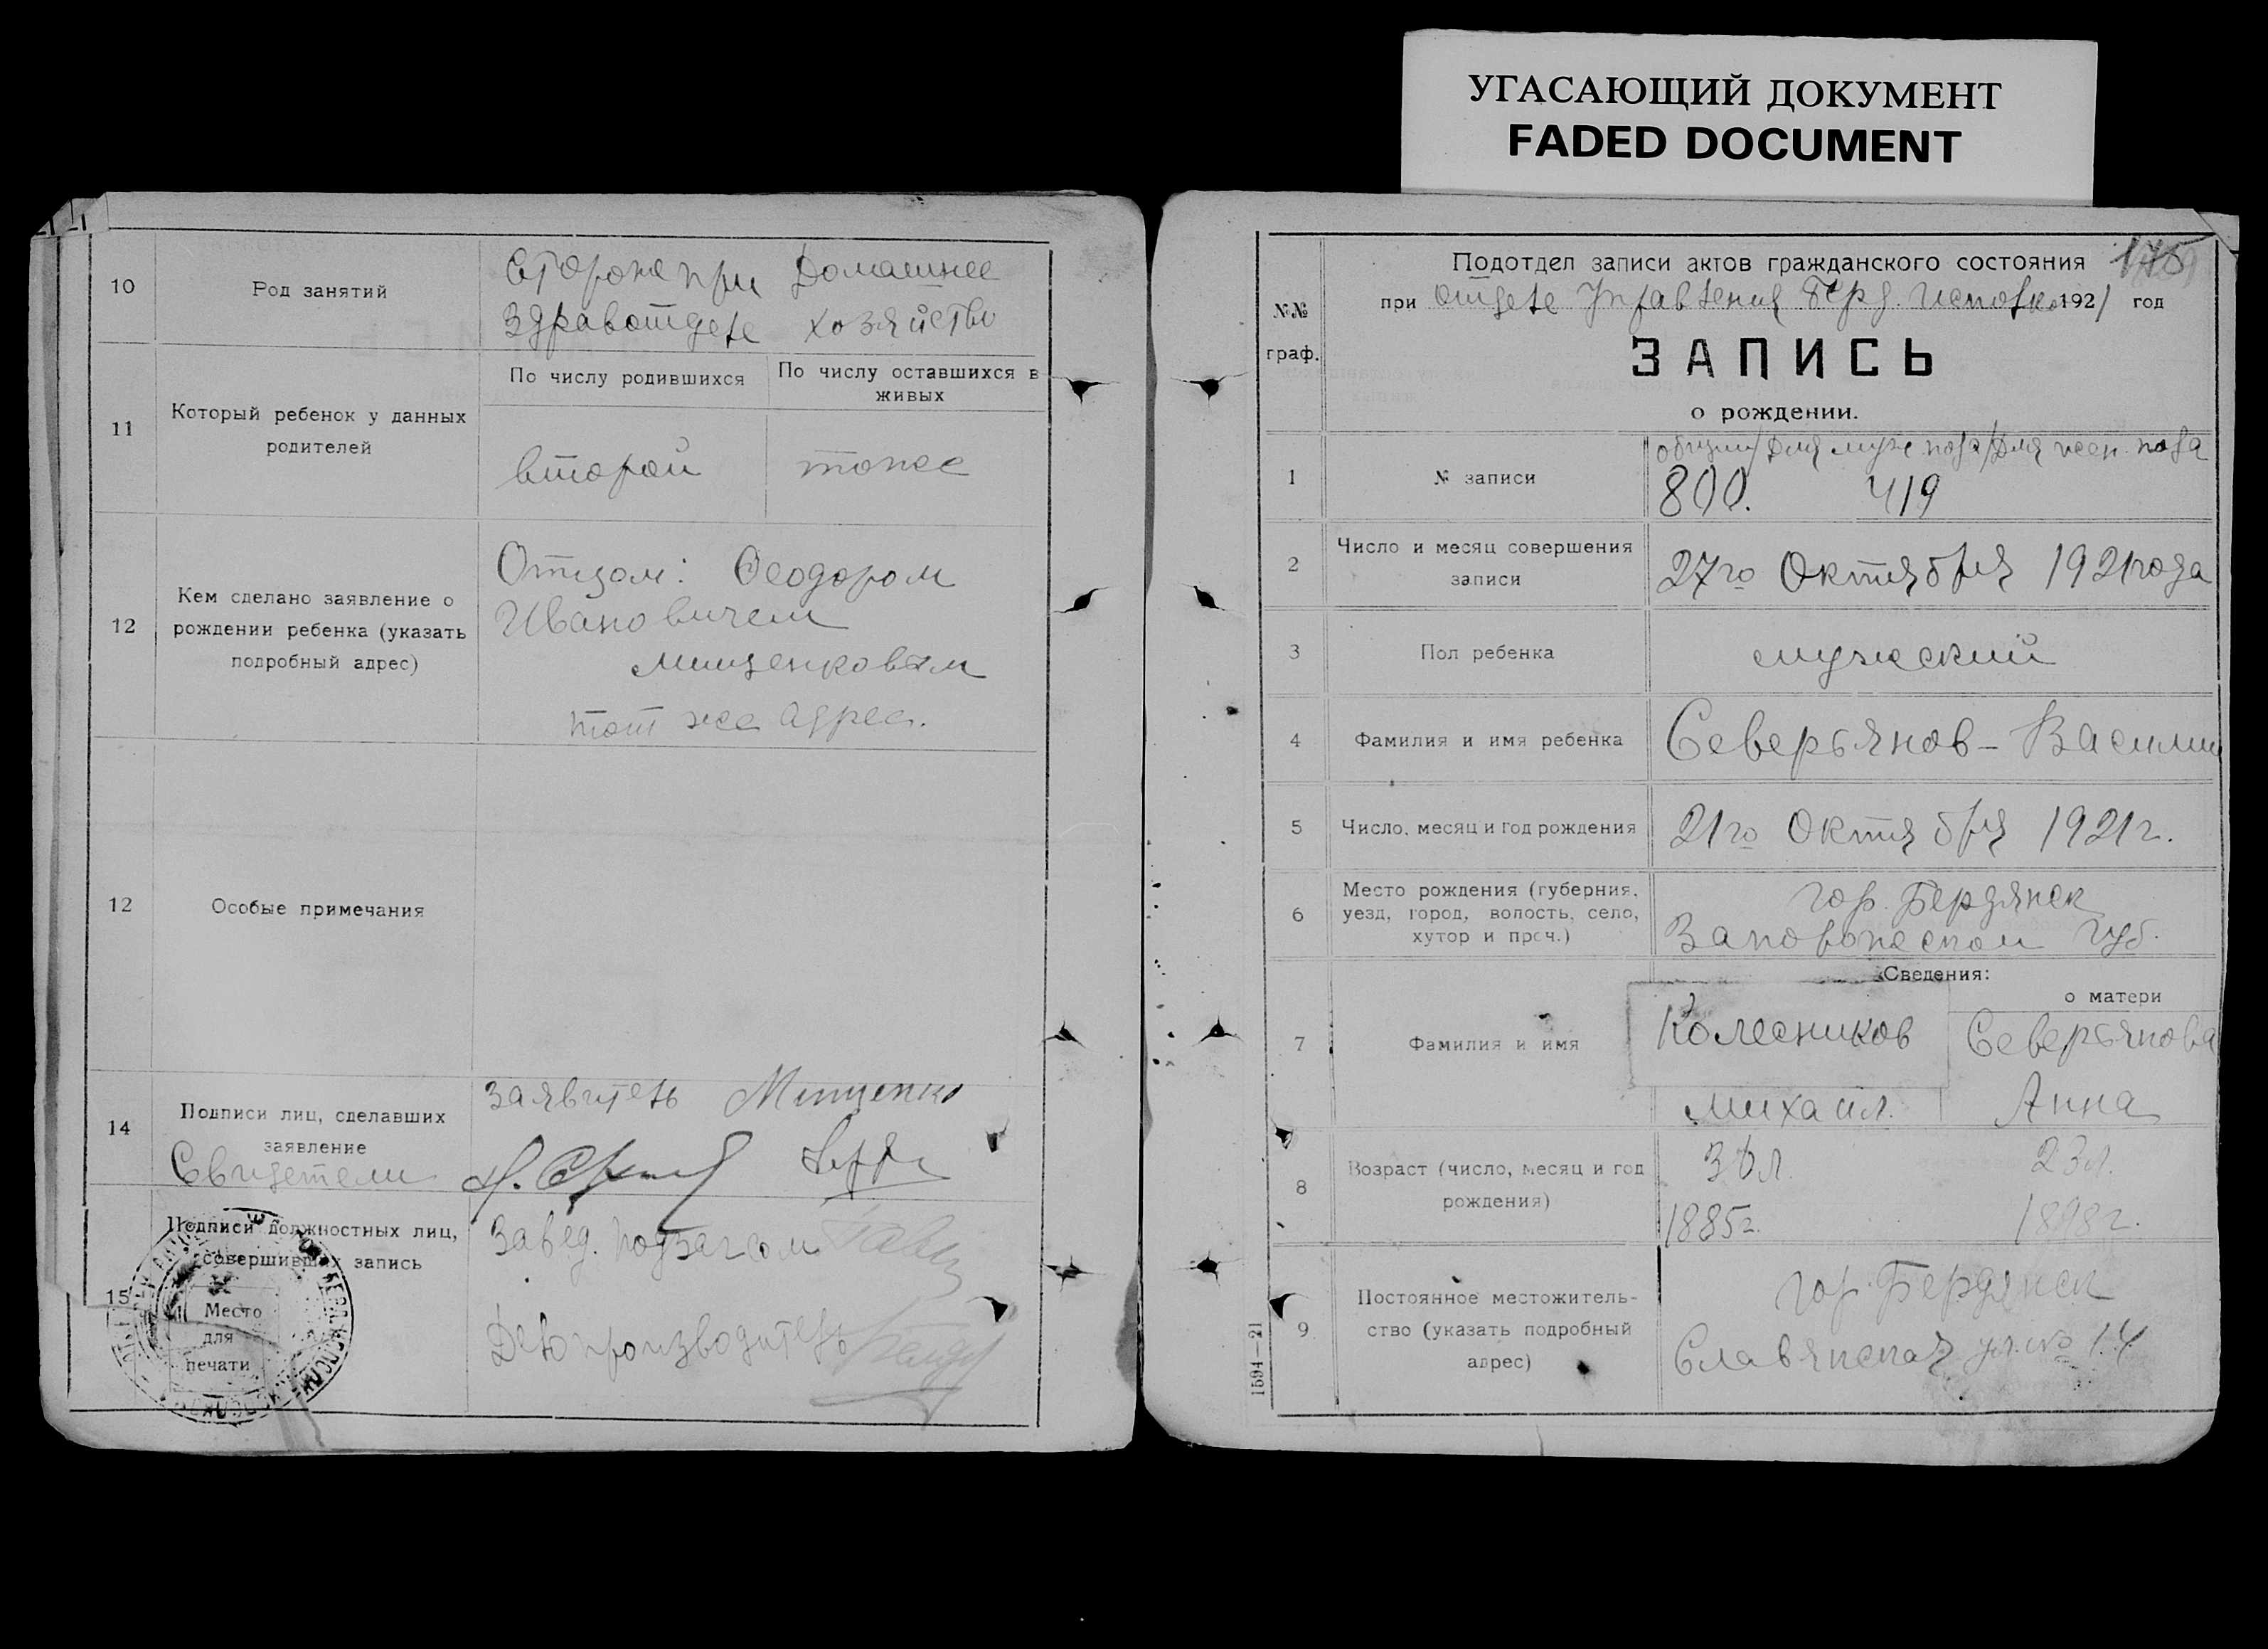 УГАСАЮЩИЙ ДОКУМЕНТ
FADED DOCUMENT
10
Род занятий
Сторож при
Здравотделе
Домашнее
хозяйство
11
Который ребенок у данных
родителей
По числу родившихся
По числу оставшихся в
живых
второй
тоже
12
Кем сделано заявление о
рождении ребенка (указать
подробный адрес)
Отцом: Феодором
Ивановичем
Мищенковым
тот же адрес.
12
Особые примечания
14
Подписи лиц, сделавших
заявление
Свидетели
Заявитель Мищенко
15
Подписи должностных лиц,
совершивших запись
Место
для
печати
Завед. подзагсом
Делопроизводитель
175
№№
граф.
Подотдел записи актов гражданского состояния
при отделе Управления Берд. Исполко 1921 год
ЗАПИСЬ
о рождении.
1
№ записи
общий/для муж. пола/для жен. пола
800. 419
2
Число и месяц совершения
записи
27го Октября 1921 года
3
Пол ребенка
мужский
4
Фамилия и имя ребенка
Северьянов - Василий
5
Число, месяц и год рождения
21го Октября 1921 г.
6
Место рождения (губерния,
уезд, город, волость, село,
хутор и проч.)
гор. Бердянск
Запорожской губ.
Сведения:
о матери
7
Фамилия и имя
Колесников
Михаил.
Северьянова
Анна
8
Возраст (число, месяц и год
рождения)
36 л.
1885 г.
23 л.
1898 г.
9
Постоянное местожитель-
ство (указать подробный
адрес)
гор. Бердянск
Славянская ул. № 14
1594—21